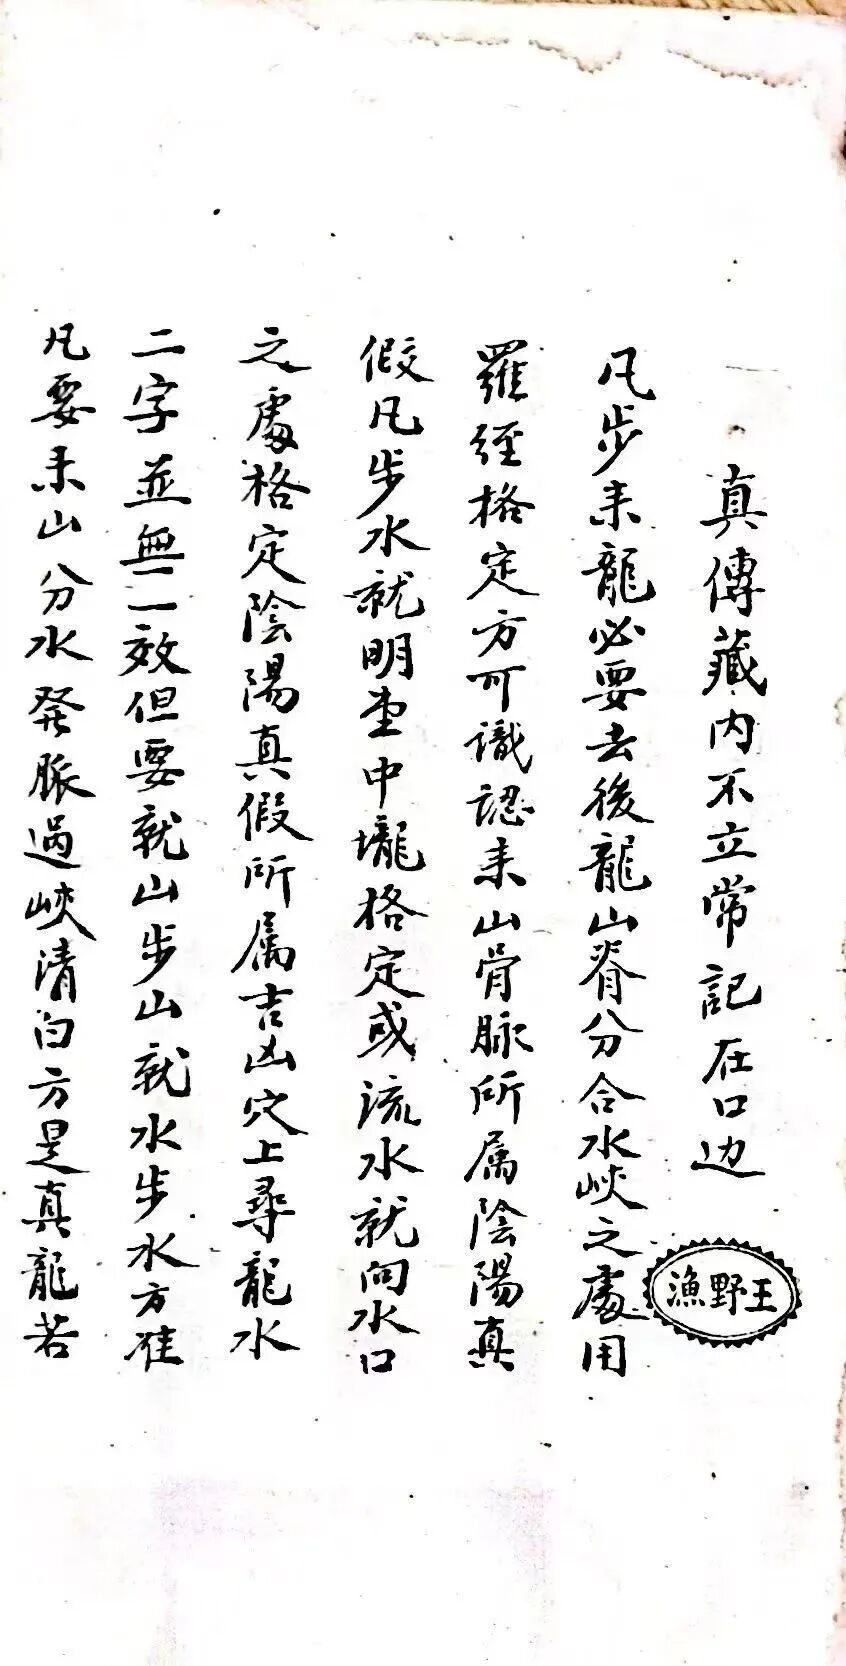 真傳藏内不立常記在口边
凡步来龍必要去後龍山脊分合水峽之處用
羅經格定方可識認来山骨脉所属陰陽真
假凡步水就明堂中壠格定或流水就向水口
之處格定陰陽真假所属吉凶穴上尋龍水
二字並無二效但要就山步山就水步水方准
凡要来山分水發脈過峽清白方是真龍若
漁野王